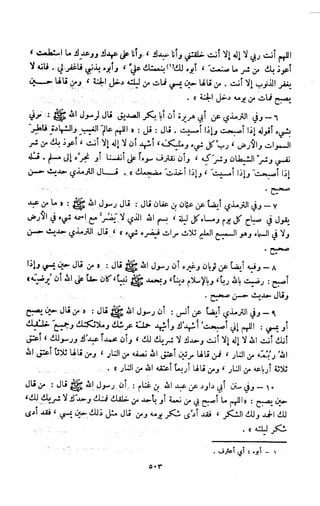 اللهم أنت ربي لا إله إلا أنت خلقتني وأنا عبدك ، وأنا على عهدك ووعدك ما استطعت ،
أعوذ بك من شر ما صنعت ، أبوء لك(١) بنعمتك عليّ ، وأبوء بذنبي فاغفر لي . فانه لا
يغفر الذنوب إلا أنت . من قالها حين يمسي فمات من ليلته دخل الجنة ، ومن قالها حــين
يصبح فمات من يومه دخل الجنة » .
٦ – وفي الترمذي عن أبي هريرة أن أبا بكر الصديق قال لرسول الله ﷺ : مرني
بشيء أقوله إذا أصبحت وإذا أمسيت . قال : قل : « اللهم عالم الغيب والشهادة فاطر
السموات والأرض ، رب كل شيء ومليكه ، أشهد أن لا إله إلا أنت ، أعوذ بك من شر
نفسي وشر الشيطان وشركه ، وأن نقترف سوءاً على أنفسنا أو نجره إلى مسلم . قله
إذا أصبحت وإذا أمسيت ، وإذا أخذت مضجعك » . قــال الترمذي حديث حسن
صحيح .
٧ – وفي الترمذي أيضاً عن عثمان بن عفان قال : قال رسول الله ﷺ : « ما من عبد
يقول في صباح كل يوم ومساء كل ليلة ، بسم الله الذي لا يضر مع اسمه شيء في الأرض
ولا في السماء وهو السميع العليم ثلاث مرات فيضره شيء » ، قال الترمذي حديث حسن
صحيح .
٨ – وفيه أيضاً عن ثوبان وغيره أن رسول الله ﷺ قال : « من قال حين يمسي وإذا
أصبح : رضيت بالله رباً ، وبالإسلام ديناً ، وبمحمد ﷺ نبياً ، كان حقاً على الله أن يُرضيَه »
وقال حديث حسن صحيح .
٩ – وفي الترمذي أيضاً عن أنس : أن رسول الله ﷺ قال : « من قال حين يصبح
أو يمسي : اللهم إني أصبحت أشهدك وأشهد حملة عرشك وملائكتك وجميع خلقك
أنك أنت الله لا إله إلا أنت وحدك لا شريك لك ، وأن محمداً عبدك ورسولك ، أعتق
الله رُبْعَه من النار ، فمن قالها مرتين أعتق الله نصفه من النار ، ومن قالها ثلاثاً أعتق الله
ثلاثة أرباعه من النار ، ومن قالها أربعاً أعتقه الله من النار » .
١٠ – وفي سنن أبي داود عن عبد الله بن غنام : أن رسول الله ﷺ قال : من قال
حين يصبح : « اللهم ما أصبح بي من نعمة أو بأحد من خلقك فمنك وحدك لا شريك لك ،
لك الحمد ولك الشكر ، فقد أدى شكر يومه ومن قال مثل ذلك حين يمسي ، فقد أدى
شكر ليلته » .
١ – أبوء : أي أعترف .
٥٠٣